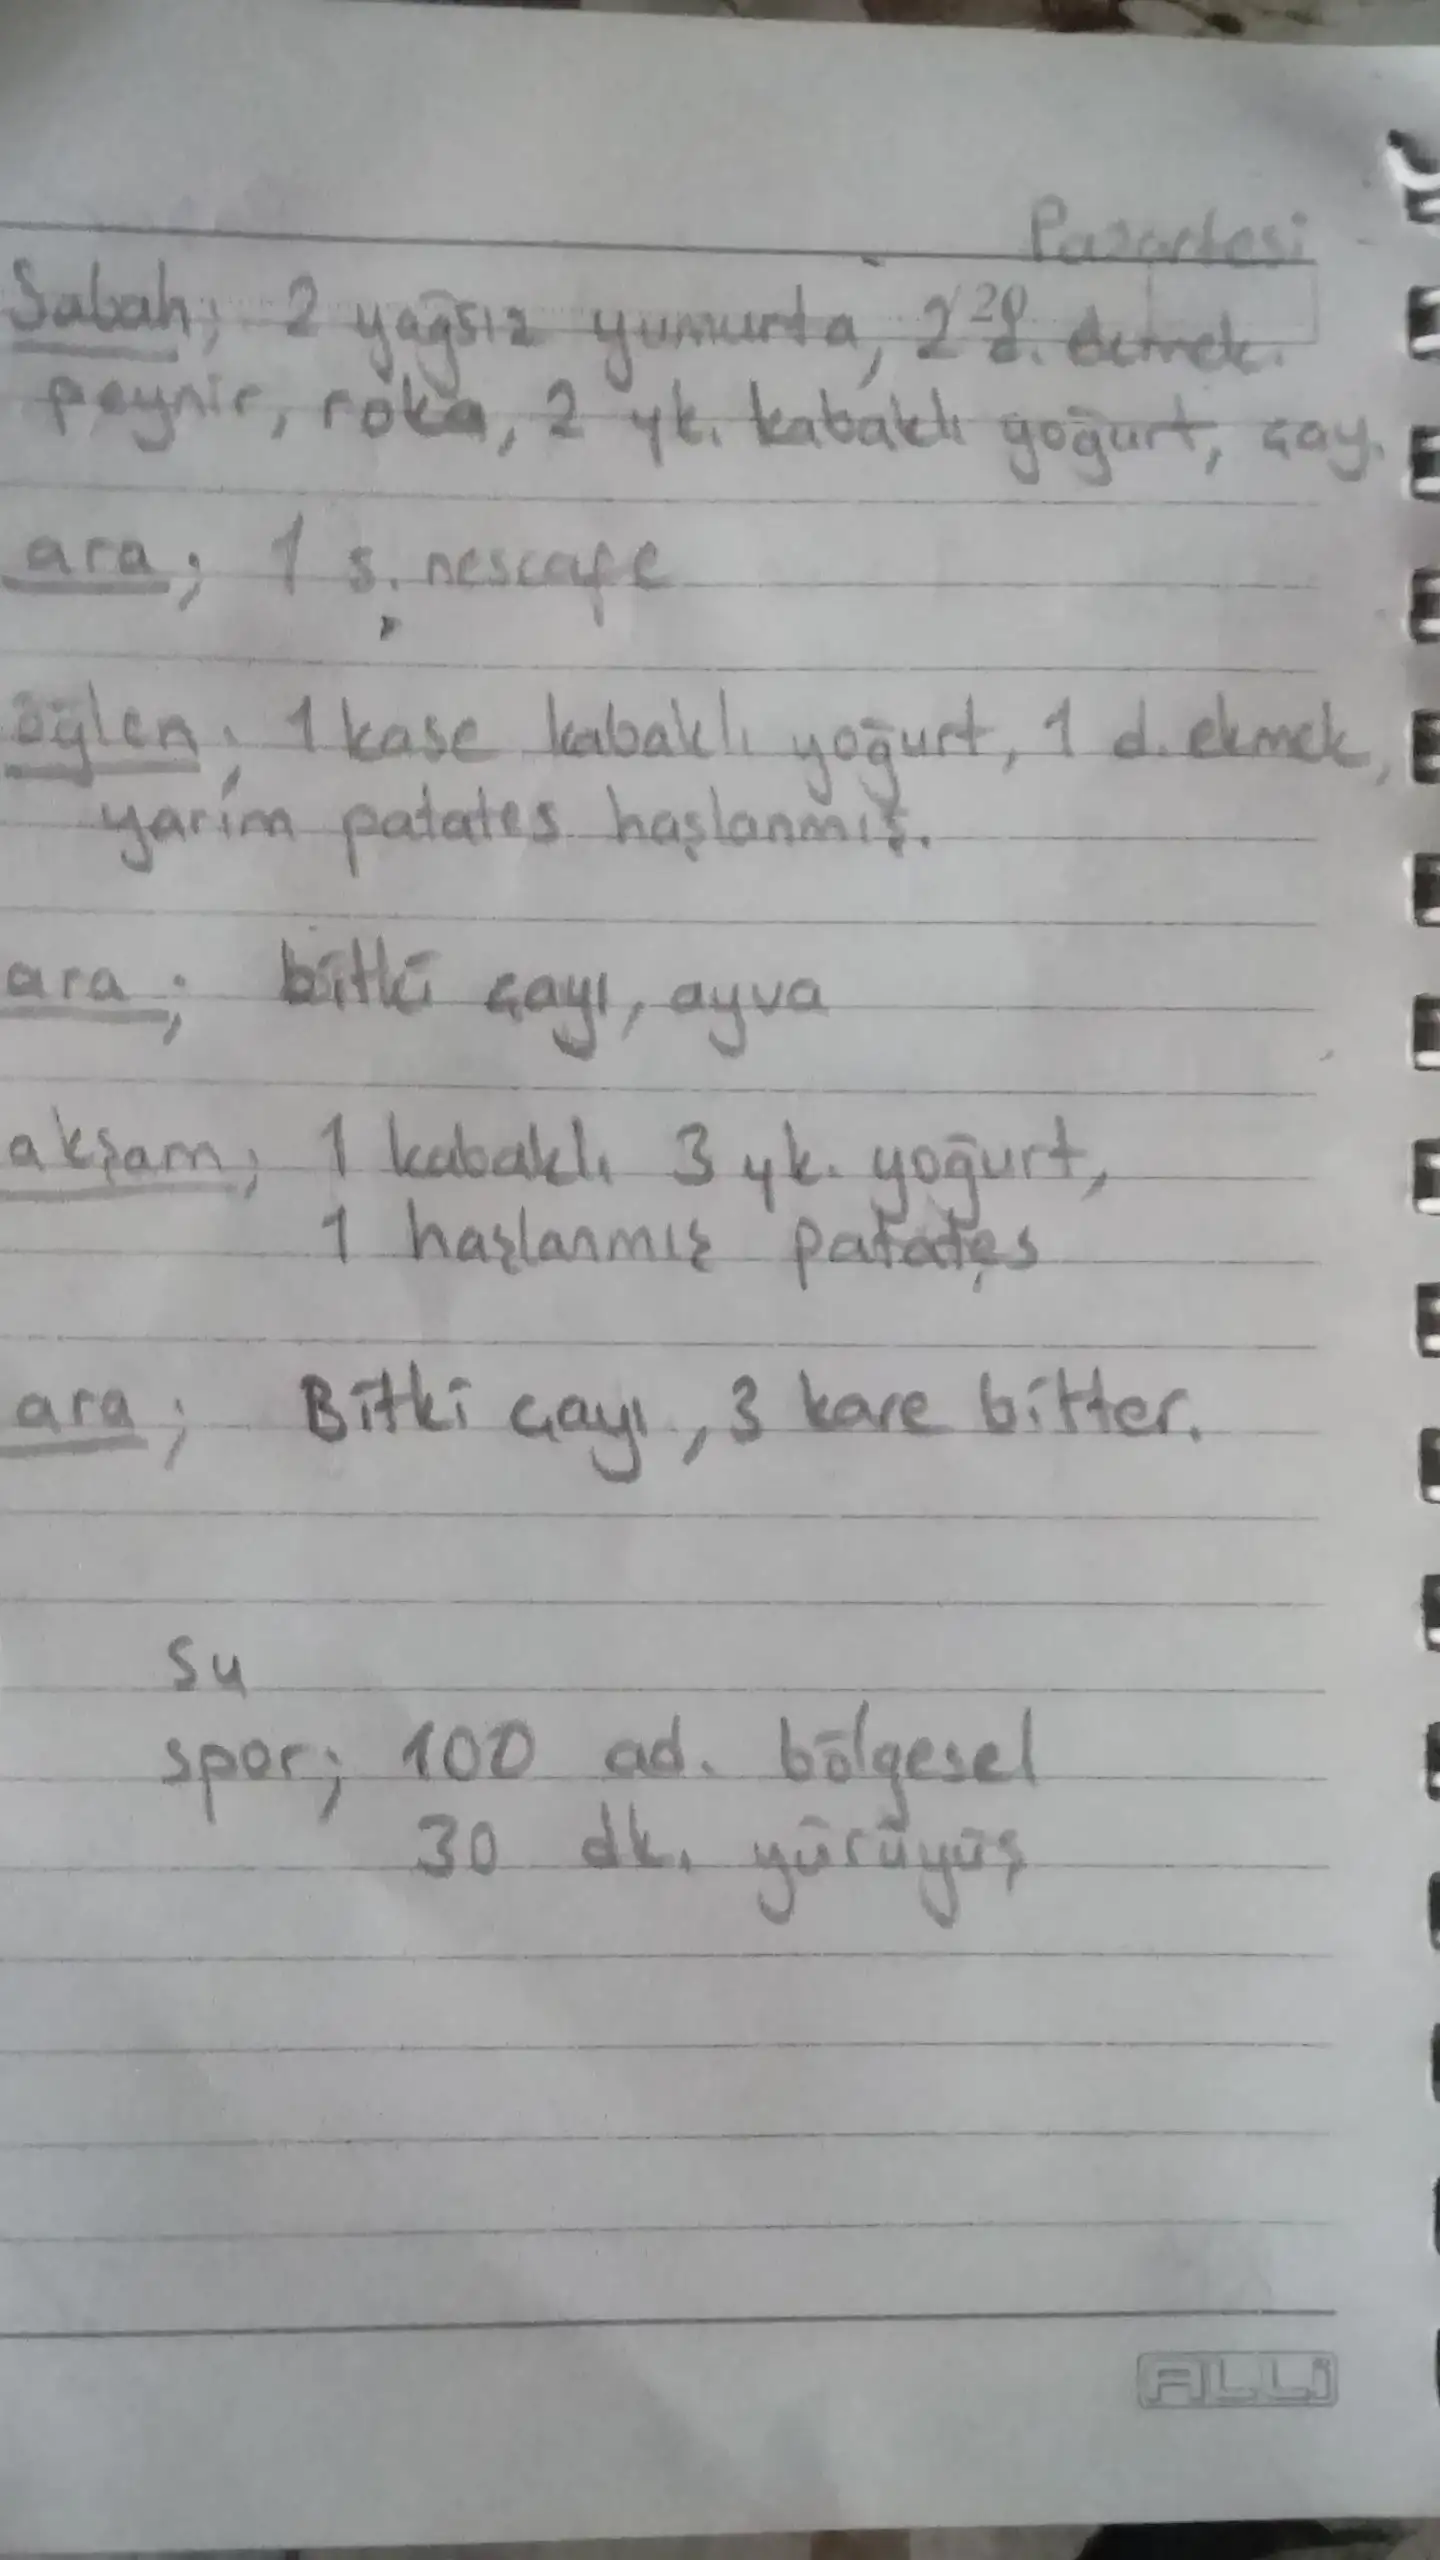 Pazartesi
Sabah; 2 yağsız yumurta, 2 d. ekmek.
peynir, roka, 2 yk. kabaklı yoğurt, çay.
ara; 1 s. nescafe
öğlen; 1 kase kabaklı yoğurt, 1 d. ekmek,
yarim patates haşlanmış.
ara; bitki çayı, ayva
akşam; 1 kabaklı 3 yk. yoğurt,
1 haşlanmış patates
ara; Bitki çayı, 3 kare bitter.
su
spor; 100 ad. bölgesel
30 dk. yürüyüş
ALLi